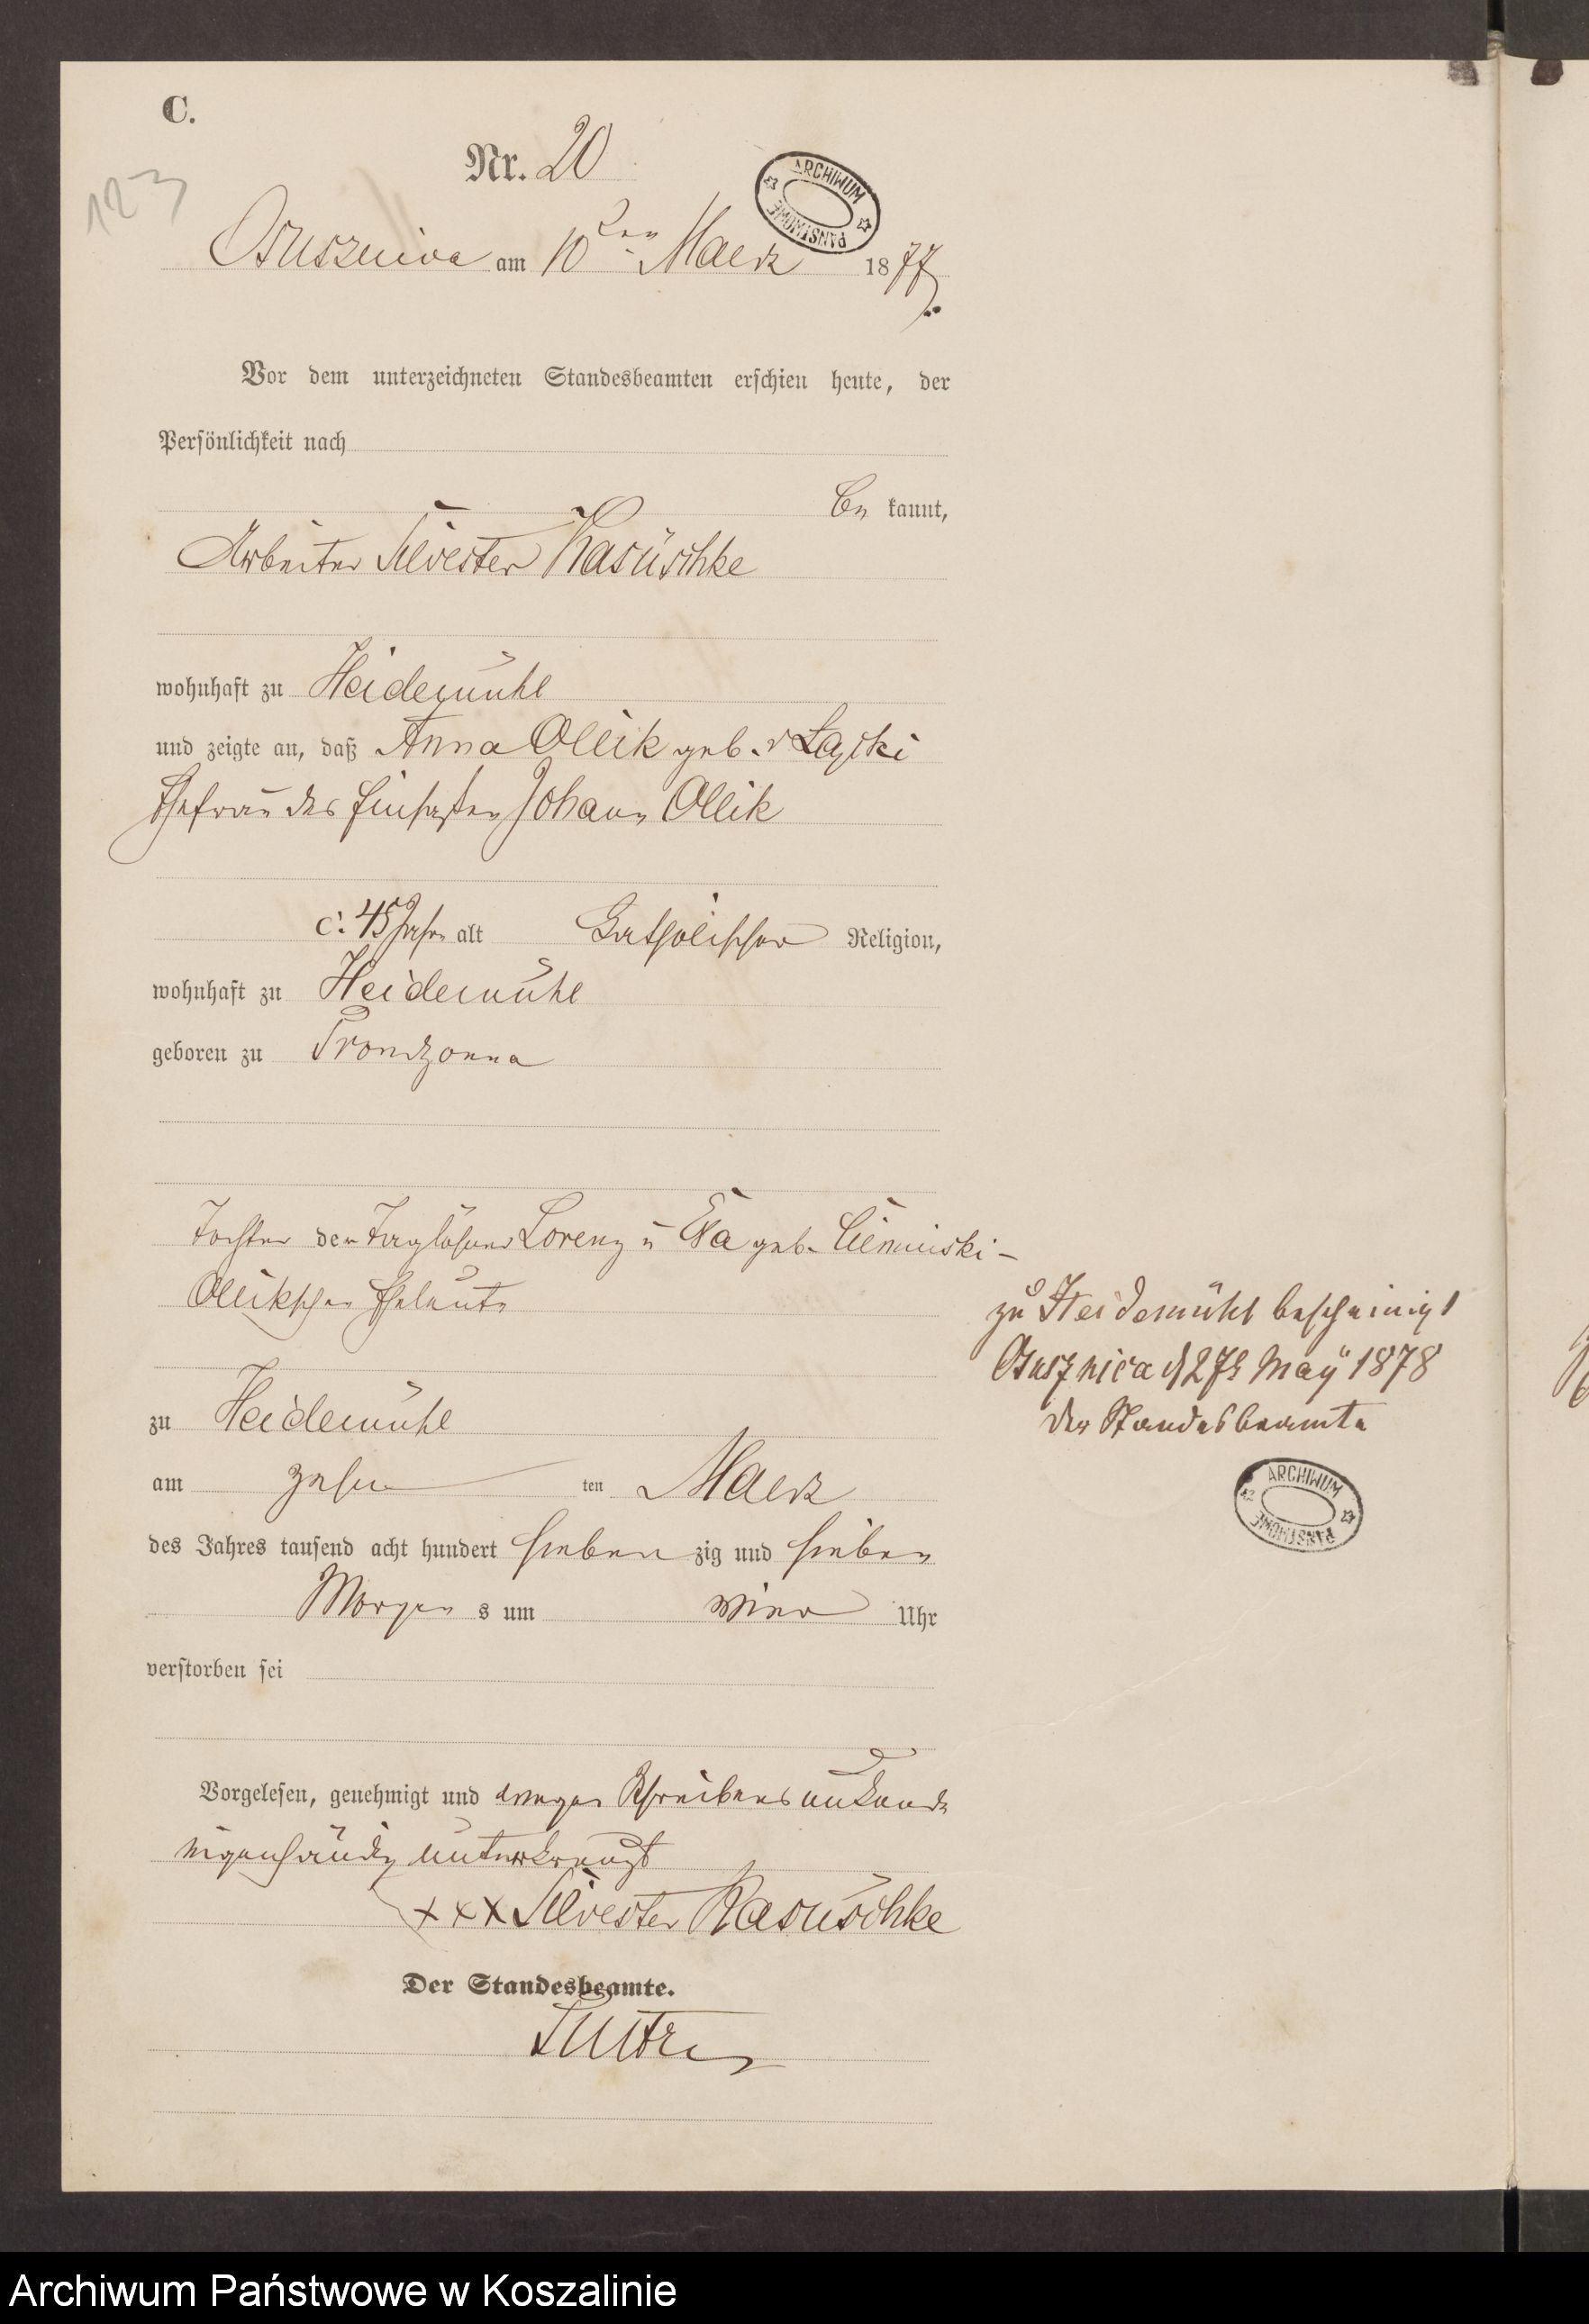 C.
123
Nr. 20
ARCHIWUM PAŃSTWOWE
Osusznica am 10ten Maerz 1877.
Vor dem unterzeichneten Standesbeamten erschien heute, der
Persönlichkeit nach
be kannt,
Arbeiter Silvester Kasüschke
wohnhaft zu Heidemühl
und zeigte an, daß Anna Ollik geb. v
Ehefrau des Einsaßen Johann Ollik
c. 45 Jahr alt katholischer Religion,
wohnhaft zu Heidemühl
geboren zu Prondzonna
Tochter der Taglöhner Lorenz u Eva geb. Cieminski-
Ollikschen Eheleute
zu Heidemühl bescheinigt
Osusznica d 27t May 1878
Der Standesbeamte
zu Heidemühl
am zehn ten Maerz
ARCHIWUM PAŃSTWOWE
des Jahres tausend acht hundert sieben zig und sieben
Morgen s um vier Uhr
verstorben sei
Vorgelesen, genehmigt und wegen Schreibensunkunde
eigenhändig unterkreuzt
+++ Silvester Kasuschke
Der Standesbeamte.
Archiwum Państwowe w Koszalinie